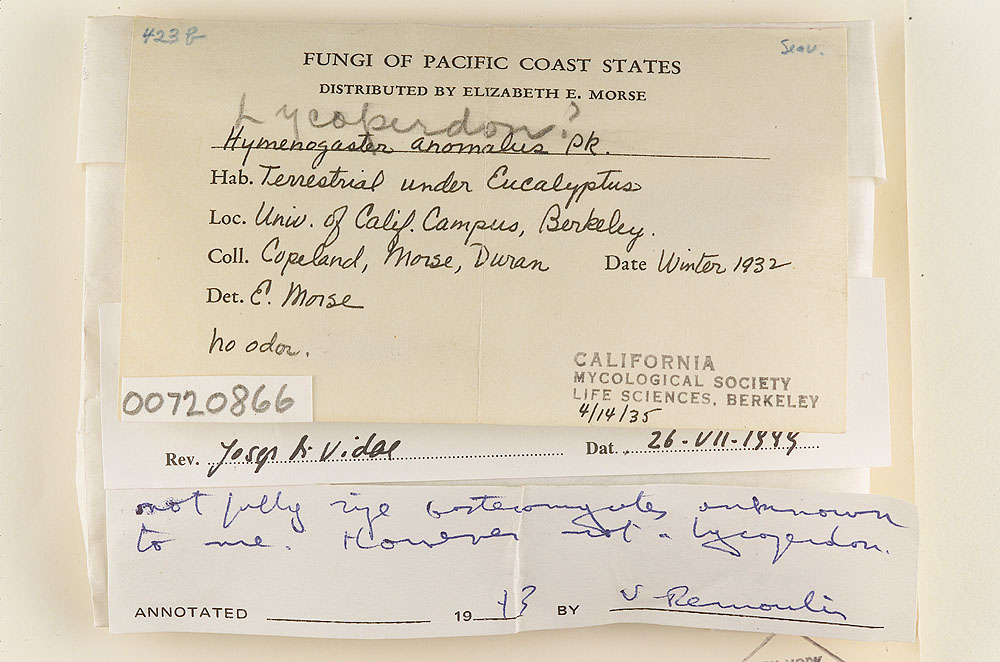 423B
Seav.
FUNGI OF PACIFIC COAST STATES
DISTRIBUTED BY ELIZABETH E. MORSE
Lycoperdon?
Hymenogaster anomalus Pk.
Hab. Terrestrial under Eucalyptus
Loc. Univ. of Calif. Campus, Berkeley.
Coll. Copeland, Morse, Duran Date Winter 1932
Det. E. Morse
no odor.
CALIFORNIA
MYCOLOGICAL SOCIETY
LIFE SCIENCES, BERKELEY
4/14/35
00720866
Rev. Vidal Dat. 26-VII-1999
not fully ripe Gasteromycetes unknown
to me. However not a Lycoperdon.
ANNOTATED 19 BY V Demoulin